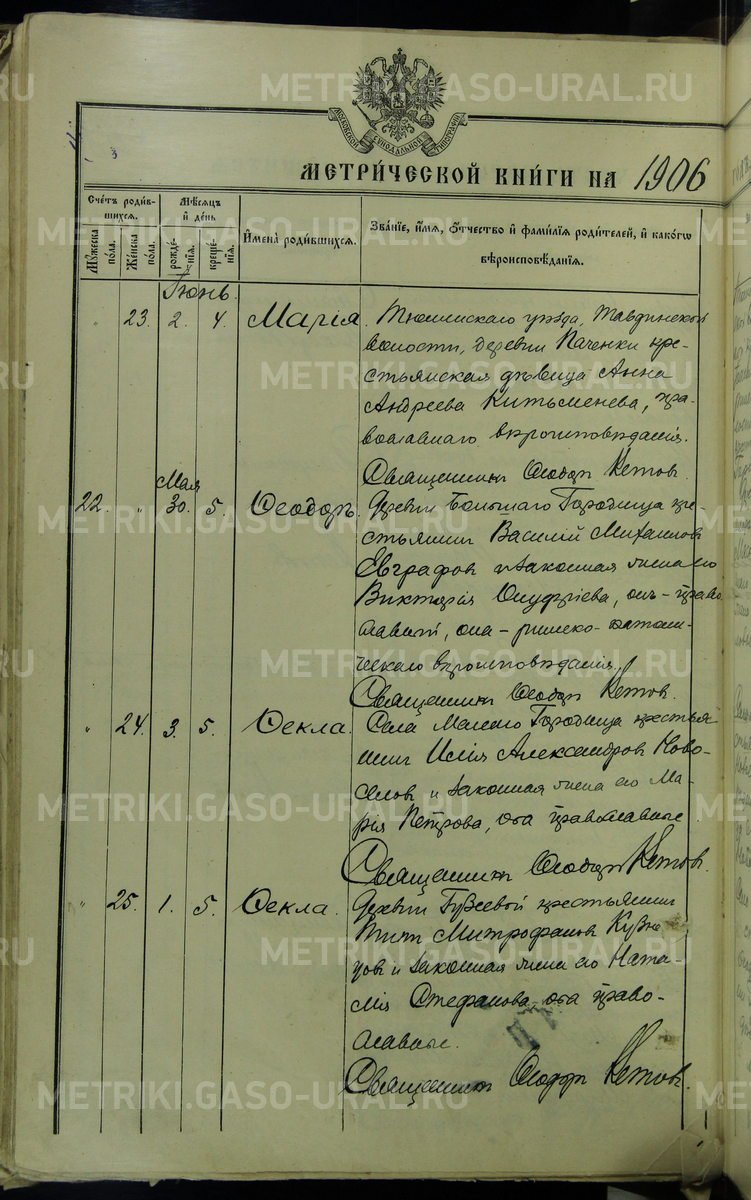 МЕТРИ́ЧЕСКОЙ КНИ́ГИ НА 1906
Счетъ роди́вшихся.
Мѣ́сяцъ и́ де́нь
И҆мена̀ роди́вшихсѧ.
Зва́нїе, и҆́мѧ, ѻ҆́тчество и҆ фами́лїѧ роди́телей, и҆ како́гѡ вѣроисповѣ́данїѧ.
Мꙋ́жеска по́ла.
Же́нска по́ла.
рожде́нїѧ.
креще́нїѧ.
Іюнь.
" 23. 2. 4. Марія. Тюменскаго уѣзда, Тавдинской
волости, деревни Паченки кре-
стьянская дѣвица Анна
Андреева, пра-
вославнаго вѣроисповѣданія.
Священникъ Ѳеодоръ Кетовъ.
Мая
22. " 30. 5. Ѳеодоръ. Деревни Большаго Городища кре-
стьянинъ Василій Михаиловъ
Евграфовъ и законная жена его
Виктория Онуфріева, онъ - право
славный, она - римско-католи-
ческаго вѣроисповѣданія,
Священникъ Ѳеодоръ Кетовъ.
" 24. 3. 5. Ѳекла. Села Малаго Городища крестья
нинъ Илія Александровъ Ново-
селовъ и законная жена его Ма-
рія Петрова, оба православные
Священникъ Ѳеодоръ Кетовъ.
" 25. 1. 5. Ѳекла. Деревни Гузеевой крестьянинъ
Титъ Митрофановъ Кузне
цовъ и законная жена его Ната-
лія Стефанова, оба право-
славные.
Священникъ Ѳеодоръ Кетовъ.
METRIKI.GASO-URAL.RU